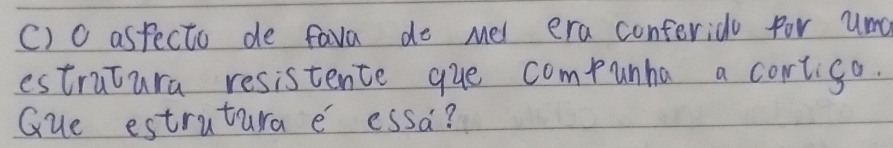 C) O aspecto de fava de mel era conferido por uma
estrutura resistente que compunha a cortiça.
Que estrutura é essa?